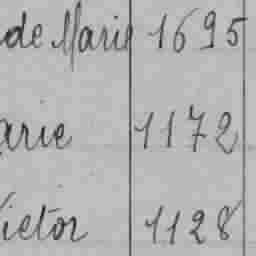 de Marie 1695
arie 1172
ictor 1128